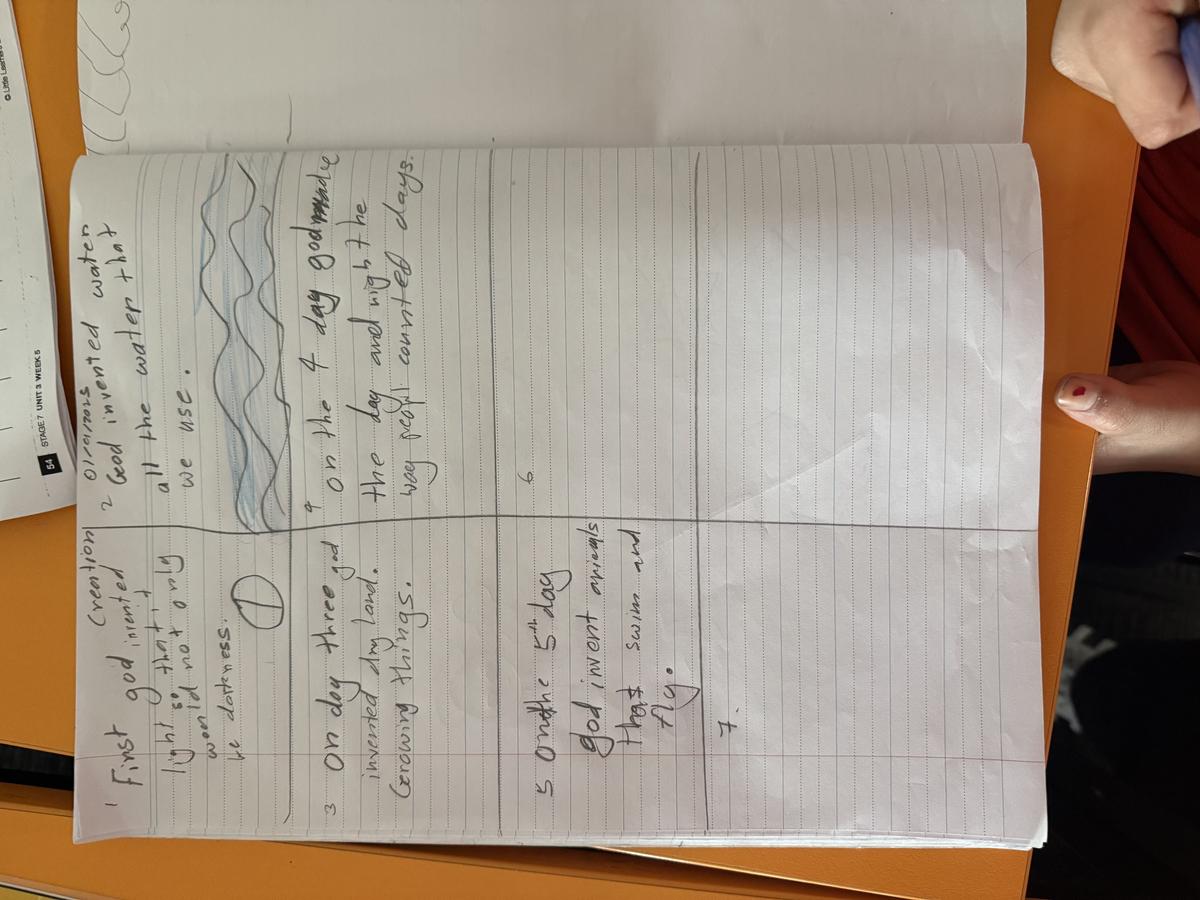 Creation
1 First god invented
light so that it
would not only
be darkness.
2 Good invented water
all the water that
we use.
3 on day three god
invented dry land.
Gerowing things.
4 on the 4 day god
the day and night the
way counted days.
5 on the 5th day
god invent animals
that swim and
fly.
6
7.
54 STAGE 7 UNIT 3 WEEK 5